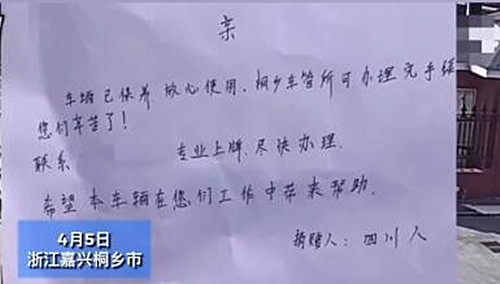 亲
车辆已保养.放心使用、桐乡车管所可办理完手续
您们辛苦了!
联系 专业上牌.尽快办理.
希望本车辆在您们工作中带来帮助.
捐赠人:四川人
4月5日
浙江嘉兴桐乡市